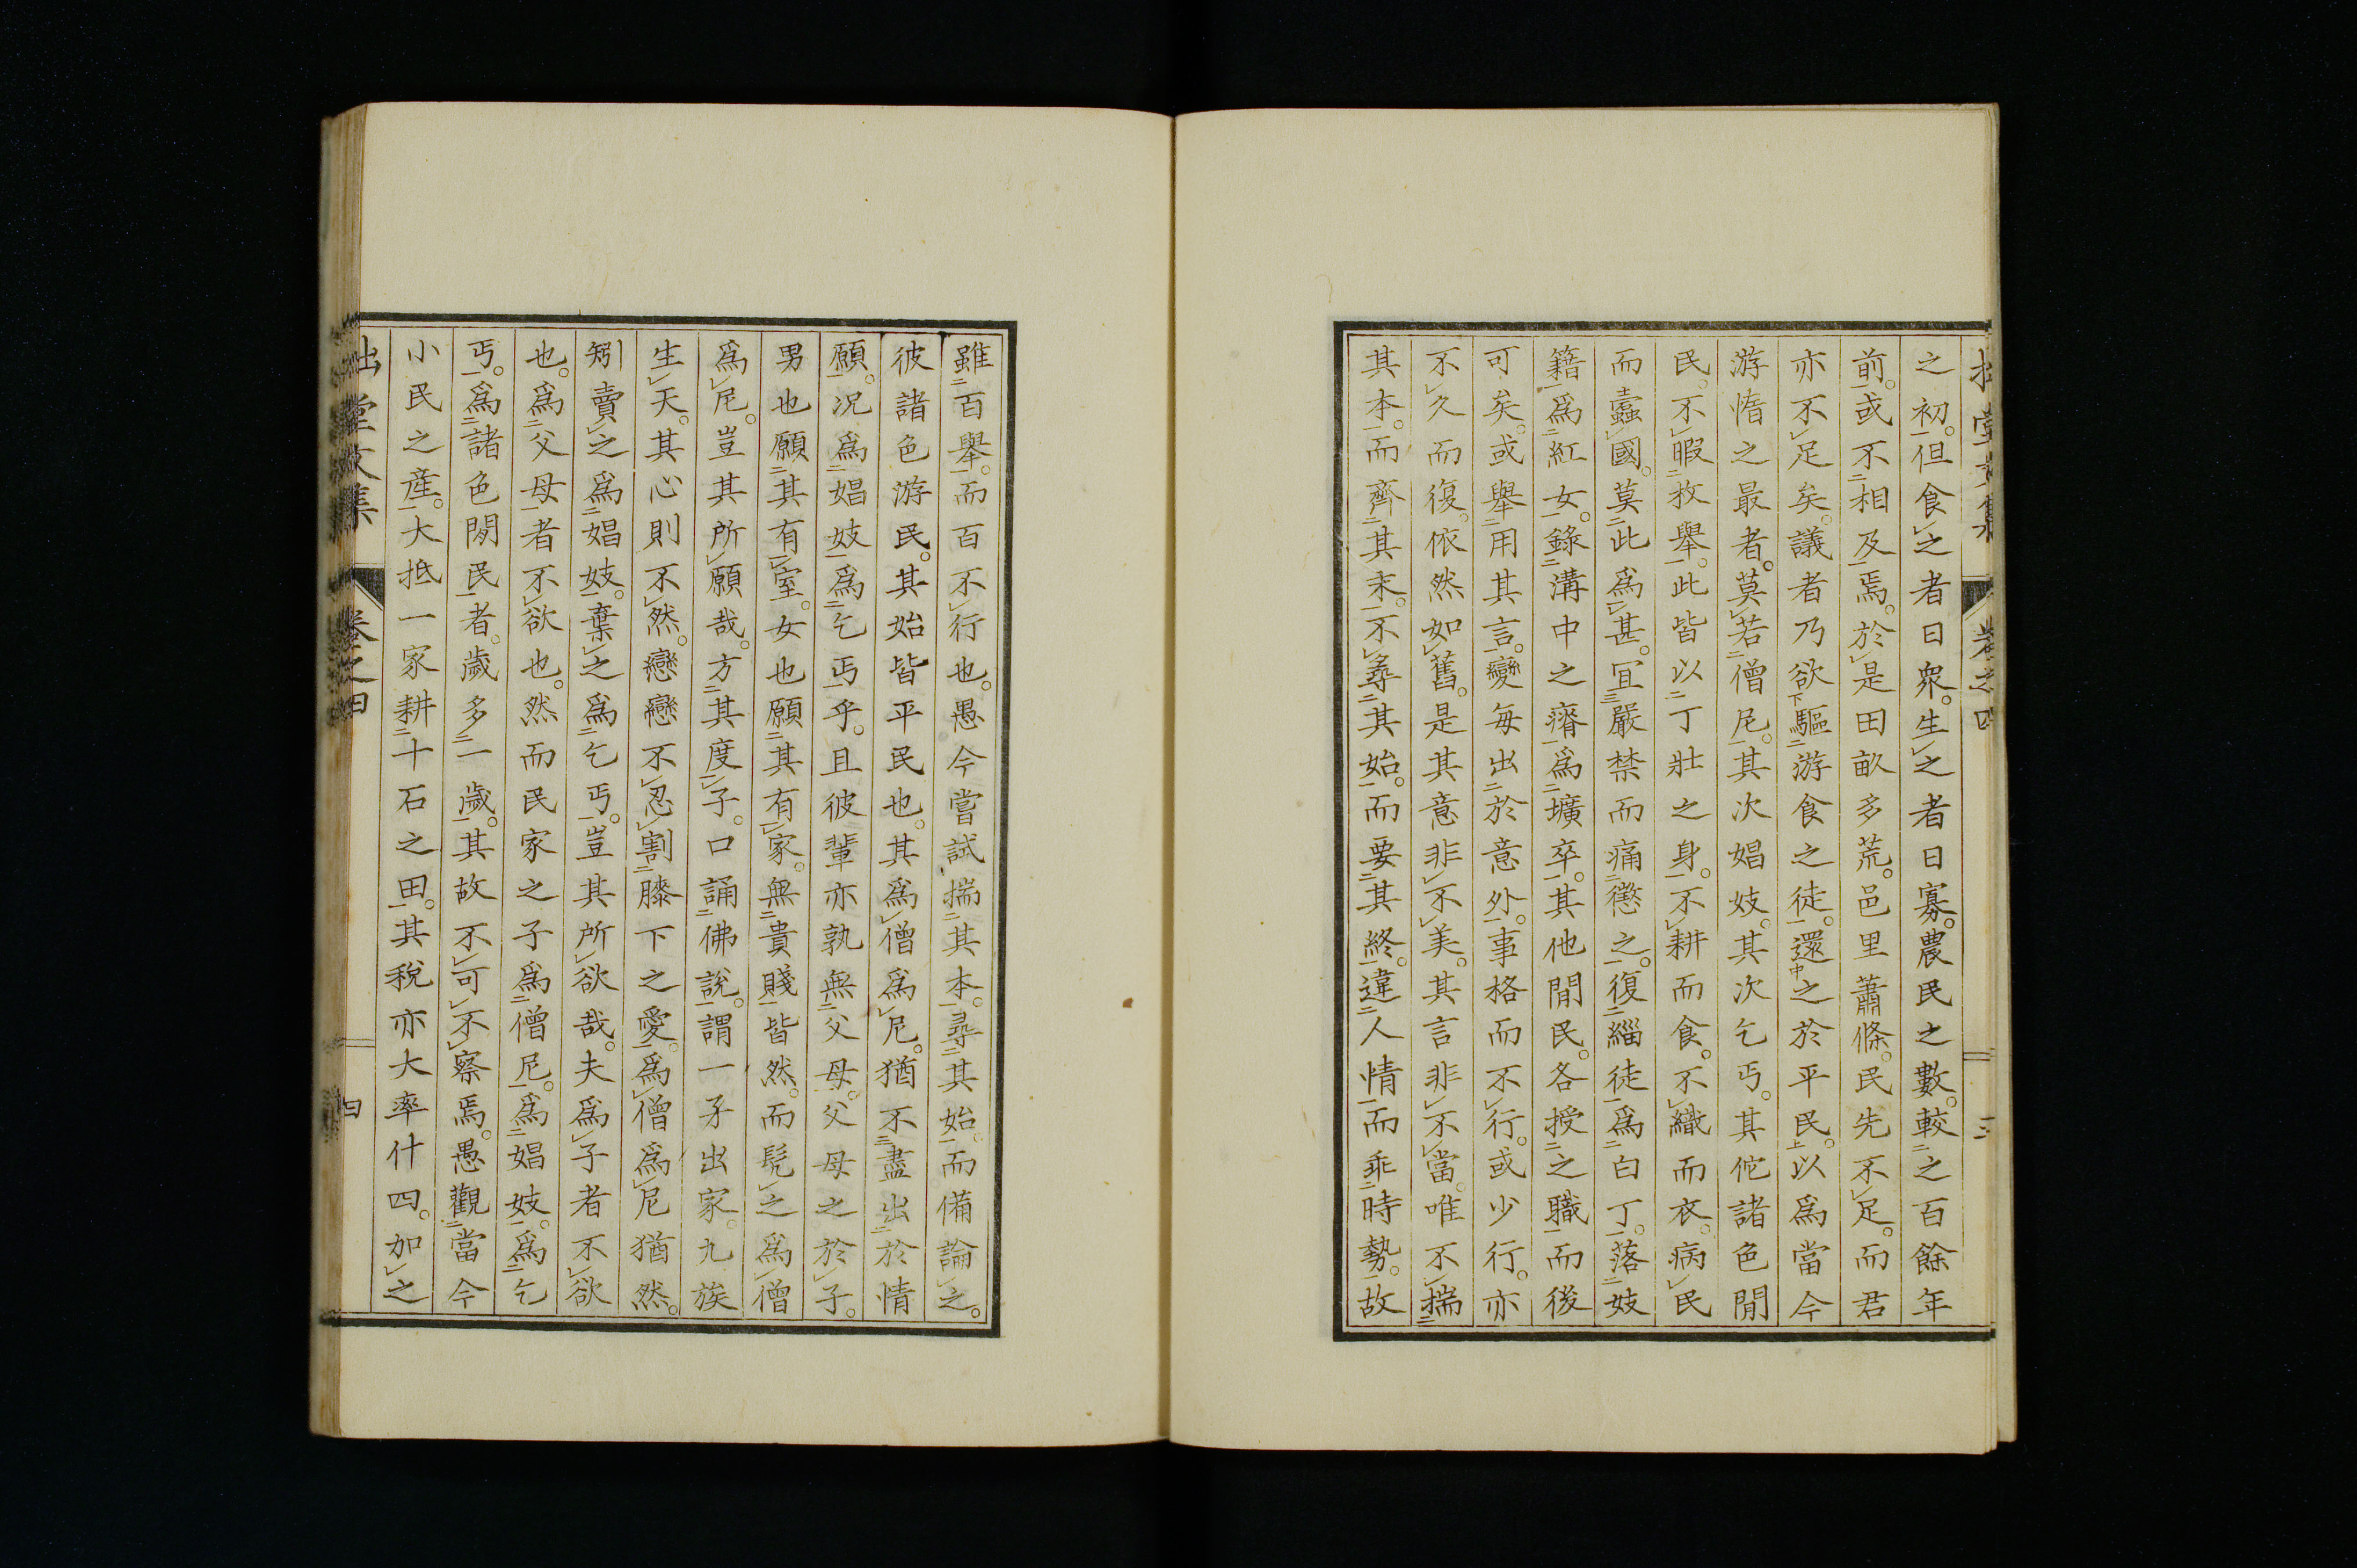 之初。但食之者日衆。生之者日寡。農民之數。較之百餘年
前。或不相及焉。於是田畝多荒。邑里蕭條。民先不足。而君
亦不足矣。議者乃欲驅游食之徒。還之於平民。以爲當今
游惰之最者。莫若僧尼。其次娼妓。其次乞丐。其佗諸色閒
民。不暇枚舉。此皆以丁壯之身。不耕而食。不織而衣。病民
而蠹國。莫此爲甚。冝嚴禁而痛懲之。復緇徒爲白丁。落妓
籍爲紅女。錄溝中之瘠爲壙卒。其他閒民。各授之職而後
可矣。或舉用其言。變每出於意外。事格而不行。或少行。亦
不久而復。依然如舊。是其意非不美。其言非不當。唯不揣
其本。而齊其末。不尋其始。而要其終。違人情而乖時勢。故
雖百舉。而百不行也。愚今嘗試揣其本。尋其始。而備論之。
彼諸色游民。其始皆平民也。其爲僧爲尼。猶不盡出於情
願。况爲娼妓爲乞丐乎。且彼輩亦孰無父母。父母之於子。
男也願其有室。女也願其有家。無貴賤皆然。而髡之爲僧
爲尼。豈其所願哉。方其度子。口誦佛說。謂一子出家。九族
生天。其心則不然。戀戀不忍割膝下之愛。爲僧爲尼猶然。
矧賣之爲娼妓。棄之爲乞丐。豈其所欲哉。夫爲子者不欲
也。爲父母者不欲也。然而民家之子爲僧尼。爲娼妓。爲乞
丐。爲諸色閒民者。歲多一歲。其故不可不察焉。愚觀當今
小民之產。大抵一家耕十石之田。其稅亦大率什四。加之
拙堂文集 卷之四 四